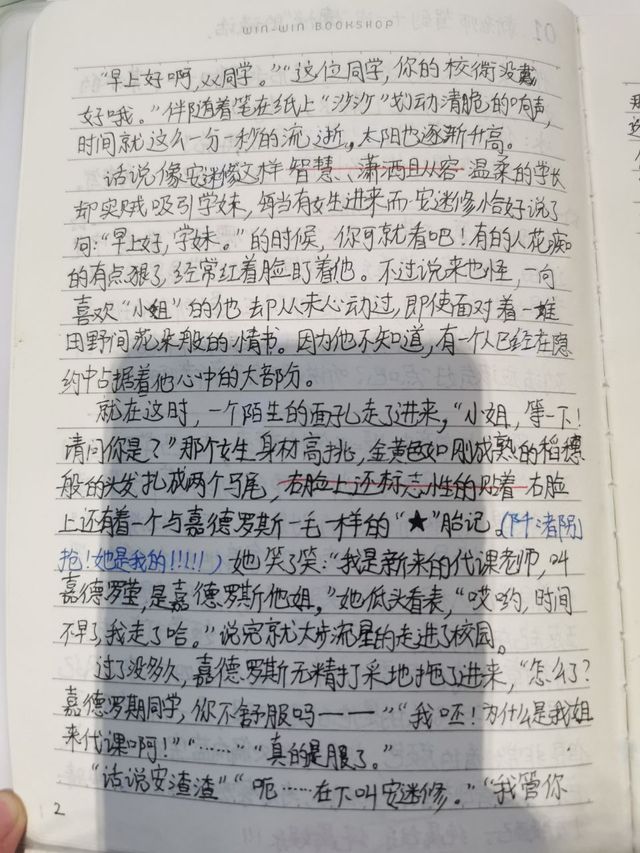 WIN-WIN BOOKSHOP
“早上好啊，xx同学。”“这位同学，你的校徽没戴
好哦。”伴随着笔在纸上“沙沙”划动清脆的响声，
时间就这么一分一秒的流逝，太阳也逐渐升高。
话说像安迷修这样智慧、潇洒且从容温柔的学长
却实贼吸引学妹，每当有女生进来而安迷修恰好说了
句：“早上好，学妹。”的时候，你可就看吧！有的人花痴
的有点狠了，经常红着脸盯着他。不过说来也怪，一向
喜欢“小姐”的他却从未心动过，即使面对着一堆
田野间花朵般的情书。因为他不知道，有一个人已经在隐
约中占据着他心中的大部分。
就在这时，一个陌生的面孔走了进来，“小姐，等一下！
请问你是？”那个女生身材高挑，金黄色如刚成熟的稻穗
般的头发扎成两个马尾，右脸上还标志性的贴着右脸
上还有着一个与嘉德罗斯一毛一样的“★”胎记。(阿渚阴
抢！她是我的!!!!!)她笑了笑：“我是新来的代课老师，叫
嘉德罗莹，是嘉德罗斯他姐。”她低头看表，“哎哟，时间
不早了，我走了哈。”说完就大步流星的走进了校园。
过了没多久，嘉德罗斯无精打采地拖了进来，“怎么了？
嘉德罗期同学，你不舒服吗——”“我呸！为什么是我姐
来代课啊！”“……”“真的是服了。”
“话说安渣渣”“呃……在下叫安迷修。”“我管你
2